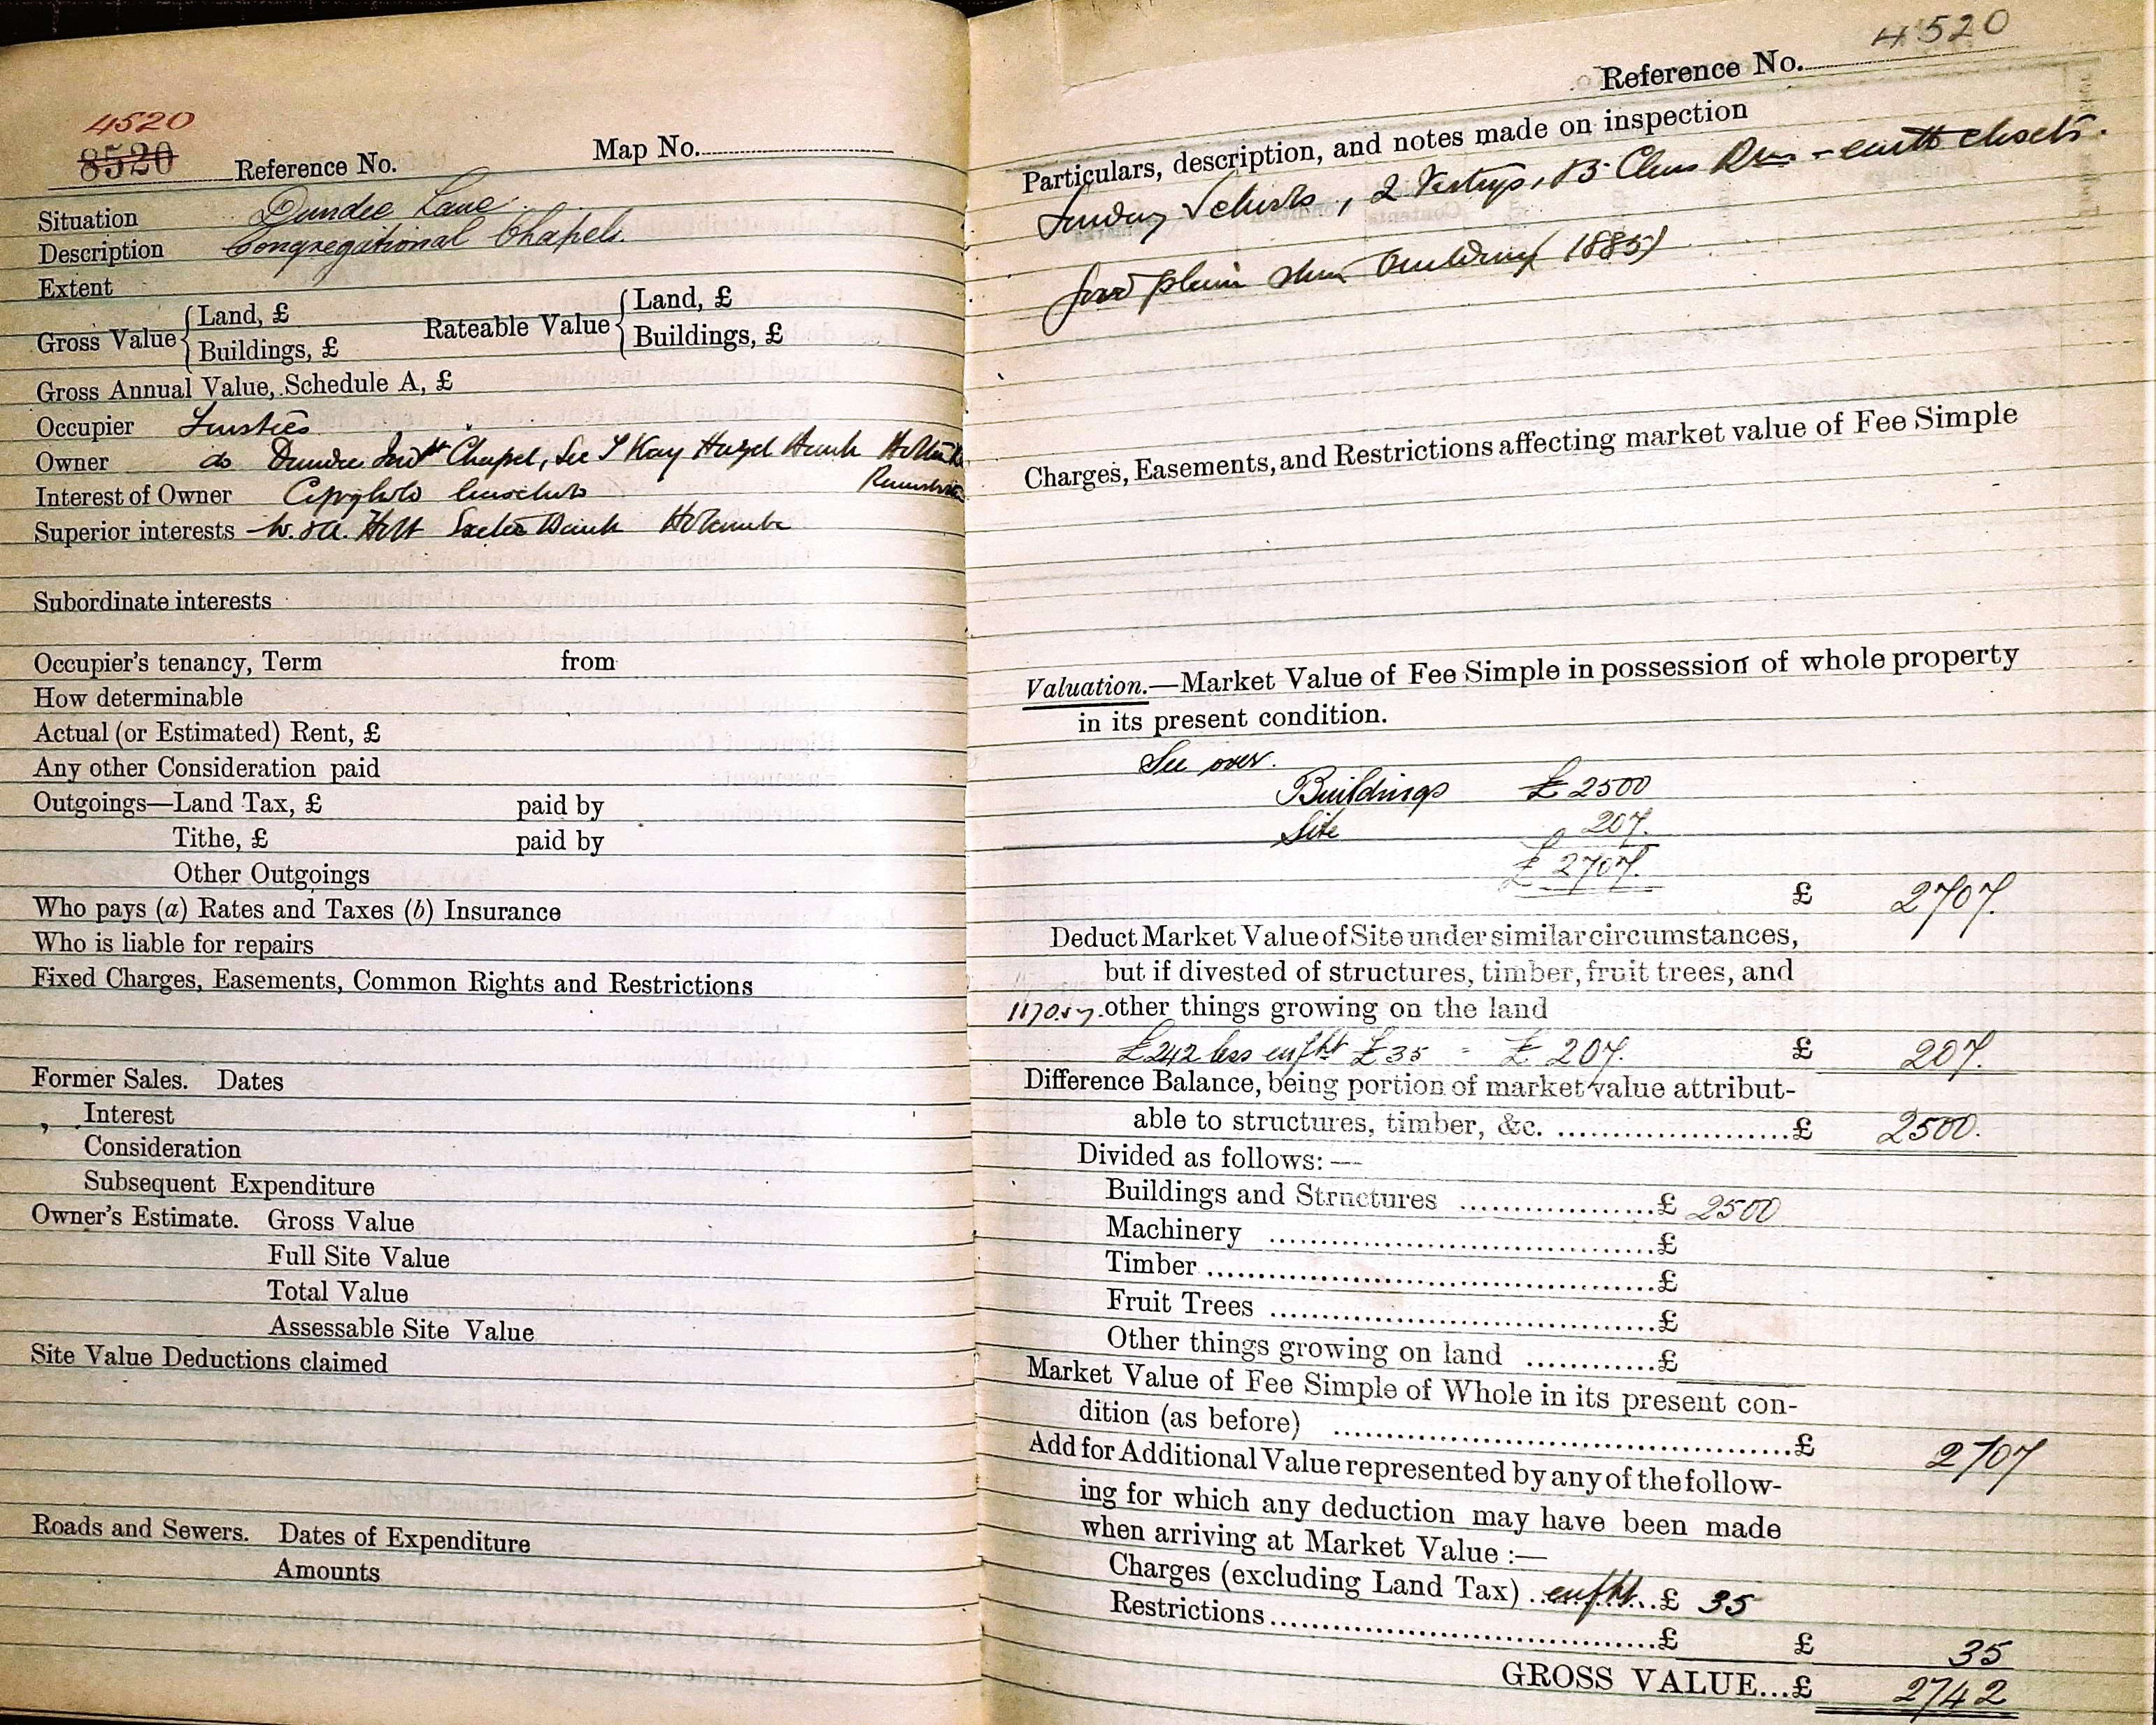 4520
8520 Reference No. Map No.
Situation Dundee Lane
Description Congregational Chapel.
Extent
Gross Value { Land, £ Rateable Value { Land, £
Buildings, £ Buildings, £
Gross Annual Value, Schedule A, £
Occupier Trustees
Owner do Dundee Chapel, Sec Kay Hazel Bank
Interest of Owner Copyhold
Superior interests Holt Bank Holcombe
Subordinate interests
Occupier's tenancy, Term from
How determinable
Actual (or Estimated) Rent, £
Any other Consideration paid
Outgoings—Land Tax, £ paid by
Tithe, £ paid by
Other Outgoings
Who pays (a) Rates and Taxes (b) Insurance
Who is liable for repairs
Fixed Charges, Easements, Common Rights and Restrictions
Former Sales. Dates
Interest
Consideration
Subsequent Expenditure
Owner's Estimate. Gross Value
Full Site Value
Total Value
Assessable Site Value
Site Value Deductions claimed
Roads and Sewers. Dates of Expenditure
Amounts
4520
Reference No.
Particulars, description, and notes made on inspection
Sunday Schools, 2 Vestrys, Class Rms - earth closets.
Good plain stone Building (1885)
Charges, Easements, and Restrictions affecting market value of Fee Simple
Valuation.—Market Value of Fee Simple in possession of whole property
in its present condition.
See over.
Buildings £ 2500
Site 207.
£ 2707.
£ 2707.
Deduct Market Value of Site under similar circumstances,
but if divested of structures, timber, fruit trees, and
1170 sy. other things growing on the land
£242 less enfht £35 = £ 207. £ 207.
Difference Balance, being portion of market value attribut-
able to structures, timber, &c. ....................£ 2500.
Divided as follows:—
Buildings and Structures ..................£ 2500
Machinery ....................................£
Timber ........................................£
Fruit Trees ....................................£
Other things growing on land ............£
Market Value of Fee Simple of Whole in its present con-
dition (as before) ....................................£ 2707
Add for Additional Value represented by any of the follow-
ing for which any deduction may have been made
when arriving at Market Value :—
Charges (excluding Land Tax) ..enfht...£ 35
Restrictions....................................£ £ 35
GROSS VALUE...£ 2742